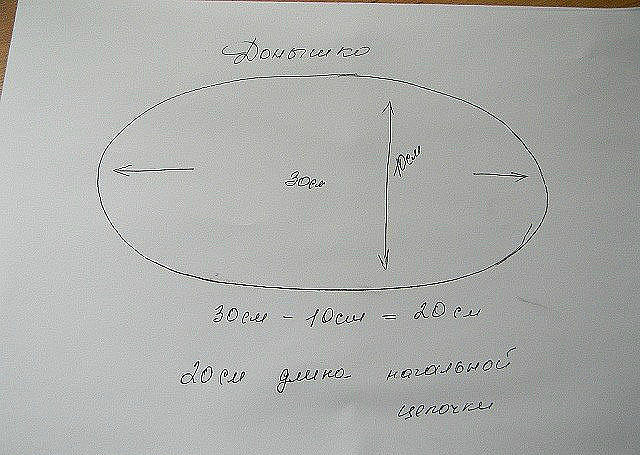 Донышко
10см
30см
30см - 10см = 20см
20см длина начальной
цепочки